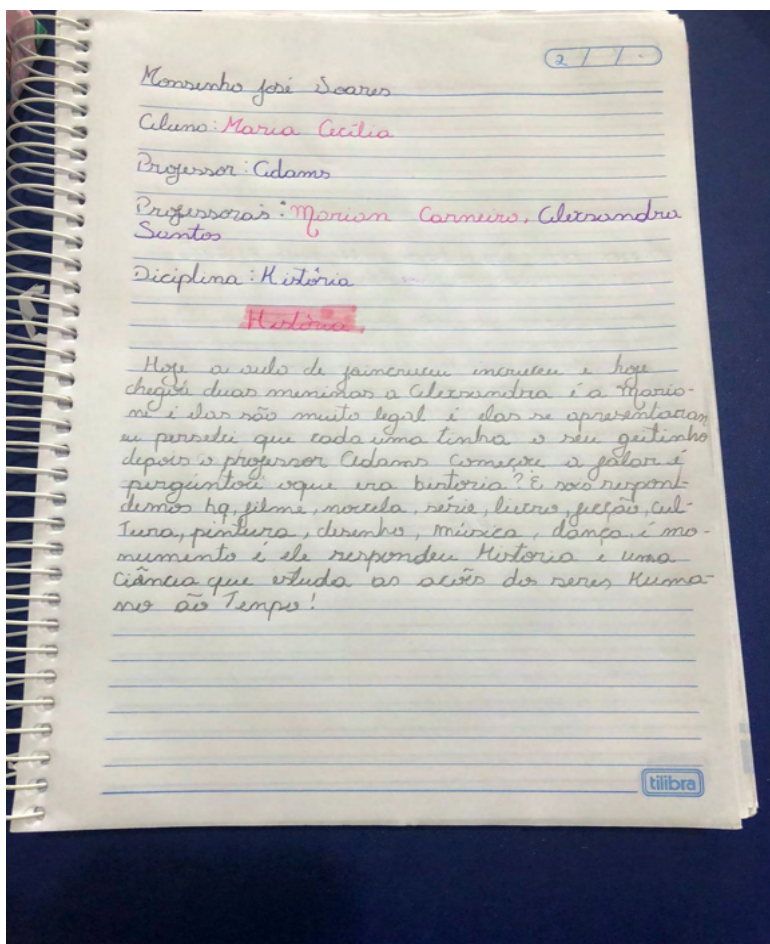 2 / /
Monsenho José Soares
Aluno: Maria Cecília
Professor: Adams
Professoras: Marian Carneiro, Alexsandra
Santos
Diciplina: História
História
Hoje a aula de e hoje
chegou duas meninas a Alexsandra é a Mario-
ni é elas são muito legal é elas se apresentaram
eu persebi que cada uma tinha o seu geitinho
depois o professor Adams começou a falar é
perguntou oque era historia? E nois respon-
demos hq, filme, novela, série, livro, ficção, cul-
tura, pintura, desenho, música, dança, é mo-
numento é ele respondeu Historia é uma
ciância que estuda as acões dos seres Huma-
no ão Tempo!
tilibra